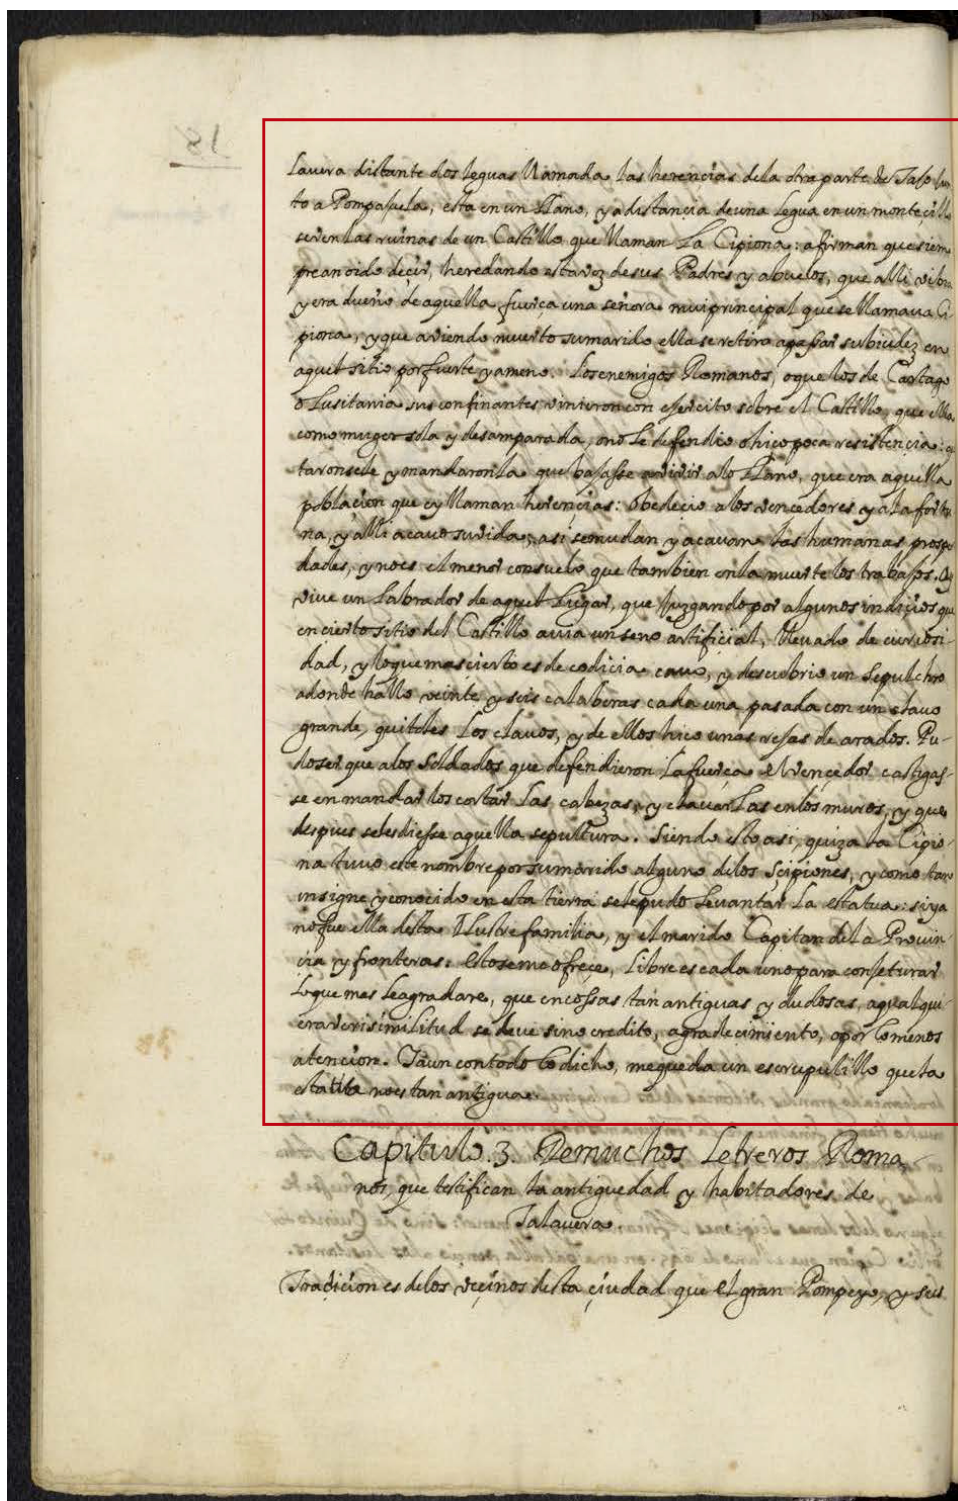 lavera distante dos leguas llamada las herencias dela otra parte de Tajo Jun
to a Pompajuela, esta en un Llano, y a distancia de una Legua en un monteçillo
se ven las ruinas de un Castillo que llaman La Cipiona: afirman que siem
pre an oido deçir, heredando esta voz de sus Padres y abuelos, que alli vibia
y era dueño de aquella fuerça una señora mui principal que se llamaua Ci
piona, y que aviendo muerto su marido ella se retiro a passar su biudez en
aquel sitio por fuerte y ameno. Los enemigos Romanos, o que los de Cartago
o Lusitania sus confinantes vinieron con ejercito sobre el Castillo, que ella
como muger sola y desamparada, o no le defendio o hiço poca resistencia:
taronsele y mandaronla que bajasse a vivir a lo Llano, que era aquella
poblaçion que oy llaman herencias: Obedecio a los vencedores y a la fortu
na, y alli acauo su vida; asi se mudan y acauan las humanas prospe
dades, y no es el menor consuelo que tambien en la muerte los trabajos. Oy
vive un Labrador de aquel Lugar, que juzgando por algunos indiçios que
en cierto sitio del Castillo auia un seno artificial, llevado de curiosi-
dad, y lo que mas cierto es de codicia cauo, y descubrio un Sepulchro
adonde hallo veinte y seis calaberas cada una pasada con un clauo
grande, quitoles Los clauos, y de ellos hiço unas rejas de arados. Pu-
do ser que a los Soldados que defendieron La fuerça el vençedor castigas-
se en mandarlos cortar Las cabezas, y clauarlas en los muros, y que
despues se les diesse aquella sepultura. Siendo esto asi, quiza la Cipio-
na tuuo este nombre por su marido alguno delos Sçipiones, y como tan
insigne y conocido en esta tierra se le pudo Levantar La estatua: si ya
no fue ella desta Ilustre familia, y el marido Capitan de La Prouin-
cia y fronteras: Esto se me ofreçe, Libre es cada uno para conjeturar
Lo que mas le agradare, que en cossas tan antiguas y dudosas, a qualqui-
era verisimilitud se deve sino credito, agradecimiento, o por lo menos
atencion. Y aun con todo lo dicho, me queda un escrupulillo que la
estatua no es tan antigua.
Capitulo. 3. De muchos Letreros Roma-
nos, que testifican la antiguedad y habitadores de
Talauera.
Tradiçion es delos veçinos desta çiudad que el gran Pompeyo, y seis